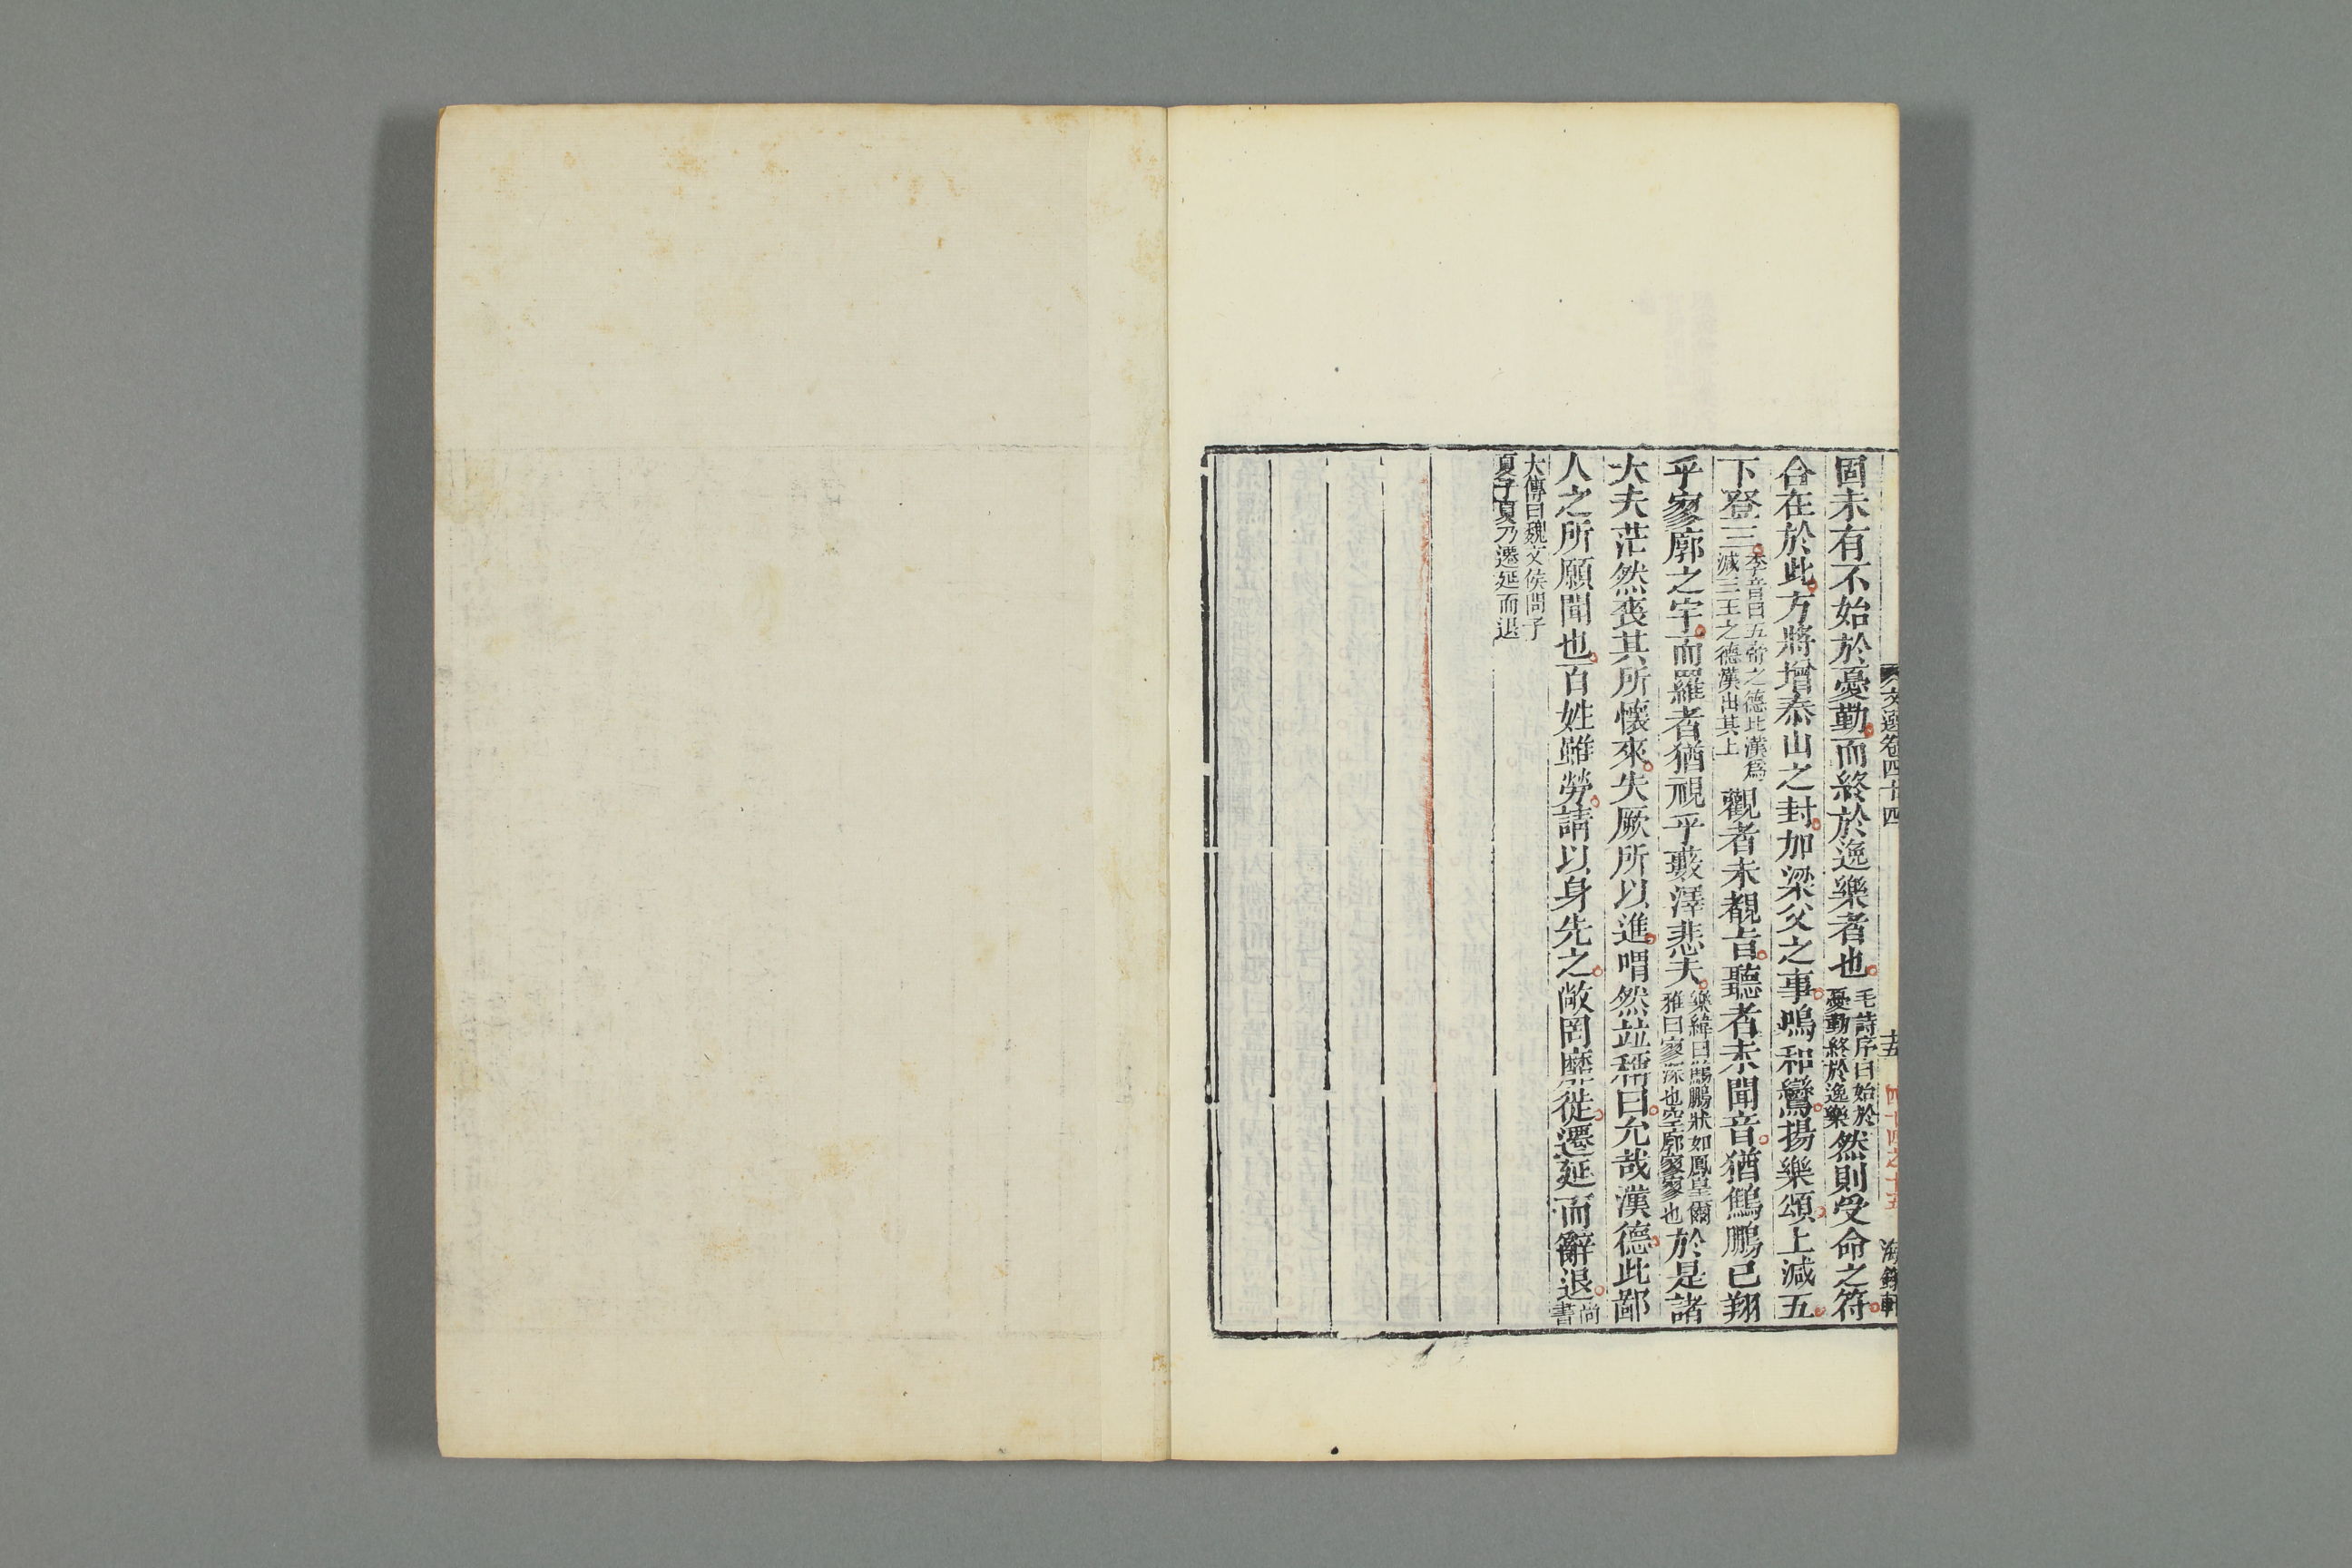 文選卷四十四
十五
四十四之十五
海錄軒
固未有不始於憂勤而終於逸樂者也毛詩序曰始於憂勤終於逸樂然則受命之符
合在於此方將增泰山之封加梁父之事鳴和鸞揚樂頌上減五
下登三李音曰五帝之德比漢爲減三王之德漢出其上觀者未覩旨聽者未聞音猶鷦鵬已翔
乎寥廓之宇而羅者猶視乎藪澤悲夫樂緯曰鷦鵬狀如鳳皇爾雅曰寥深也空廓寥寥也於是諸
大夫茫然喪其所懷來失厥所以進喟然並稱曰允哉漢德此鄙
人之所願聞也百姓雖勞請以身先之敞罔靡徙遷延而辭退尚書
大傳曰魏文侯問子夏子夏乃遷延而退